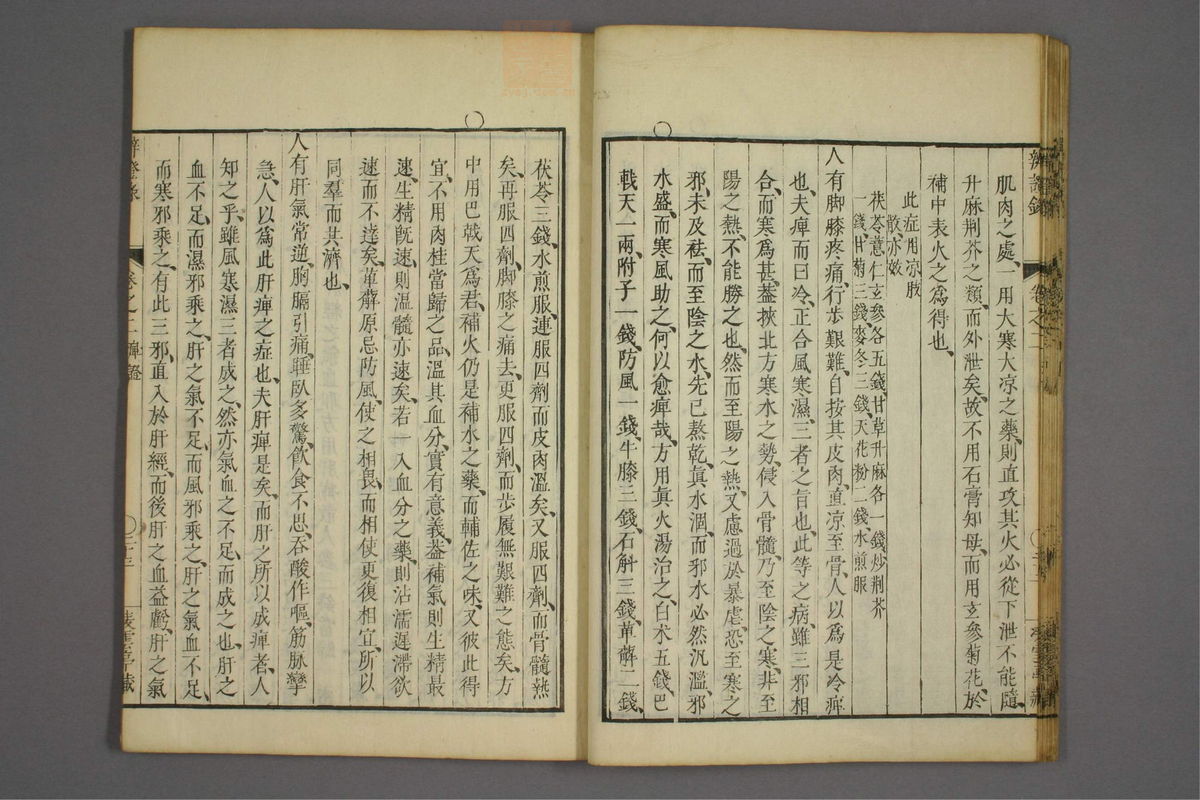 辨證錄 卷之二
肌肉之處、一用大寒大凉之藥、則直攻其火必從下泄不能隨
升麻荆芥之類、而外泄矣、故不用石膏知母、而用玄參菊花、於
補中表火之為得也、
此症用凉肢
散亦效
茯苓薏仁玄參各五錢、甘草升麻各一錢、炒荆芥
一錢、甘菊三錢、麥冬三錢、天花粉二錢、水煎服
人有脚膝疼痛、行步艱難、自按其皮肉、直凉至骨、人以爲是冷痺
也、夫痺而曰冷、正合風寒濕三者之旨也、此等之病、雖三邪相
合、而寒爲甚、葢挾北方寒水之勢、侵入骨髓、乃至陰之寒、非至
陽之熱、不能勝之也、然而至陽之熱、又慮過於暴虐、恐至寒之
邪、未及祛、而至陰之水、先已熬乾、眞水涸、而邪水必然汎濫、邪
水盛、而寒風助之、何以愈痺哉、方用眞火湯治之、白术五錢、巴
戟天一兩、附子一錢、防風一錢、牛膝三錢、石斛三錢、萆薢二錢、
茯苓三錢、水煎服、連服四劑而皮肉溫矣、又服四劑、而骨髓熱
矣、再服四劑、脚膝之痛去、更服四劑、而步履無艱難之態矣、方
中用巴戟天爲君、補火仍是補水之藥、而輔佐之味、又彼此得
宜、不用肉桂當歸之品、溫其血分、實有意義、葢補氣則生精最
速、生精旣速、則溫髓亦速矣、若一入血分之藥、則沾濡遲滯欲
速而不達矣、萆薢原忌防風、使之相畏、而相使更復相宜、所以
同羣而共濟也、
人有肝氣常逆、胸膈引痛、睡臥多驚、飮食不思、吞酸作嘔、筋脉攣
急、人以爲此肝痺之症也、夫肝痺是矣、而肝之所以成痺者、人
知之乎、雖風寒濕三者成之、然亦氣血之不足、而成之也、肝之
血不足、而濕邪乘之、肝之氣不足、而風邪乘之、肝之氣血不足、
而寒邪乘之、有此三邪、直入於肝經、而後肝之血益虧、肝之氣
辨證錄 卷之二 痺證